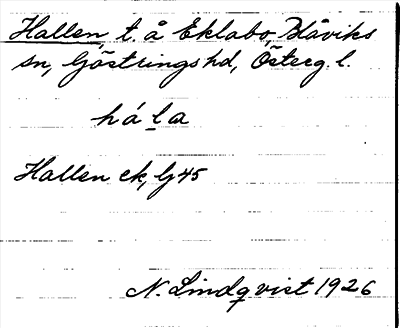 Hallen, t. å Eklabo, Blåviks
sn, Göstringshd, Österg. l.
há l a
Hallen ek, Gj 45
N. Lindqvist 1926